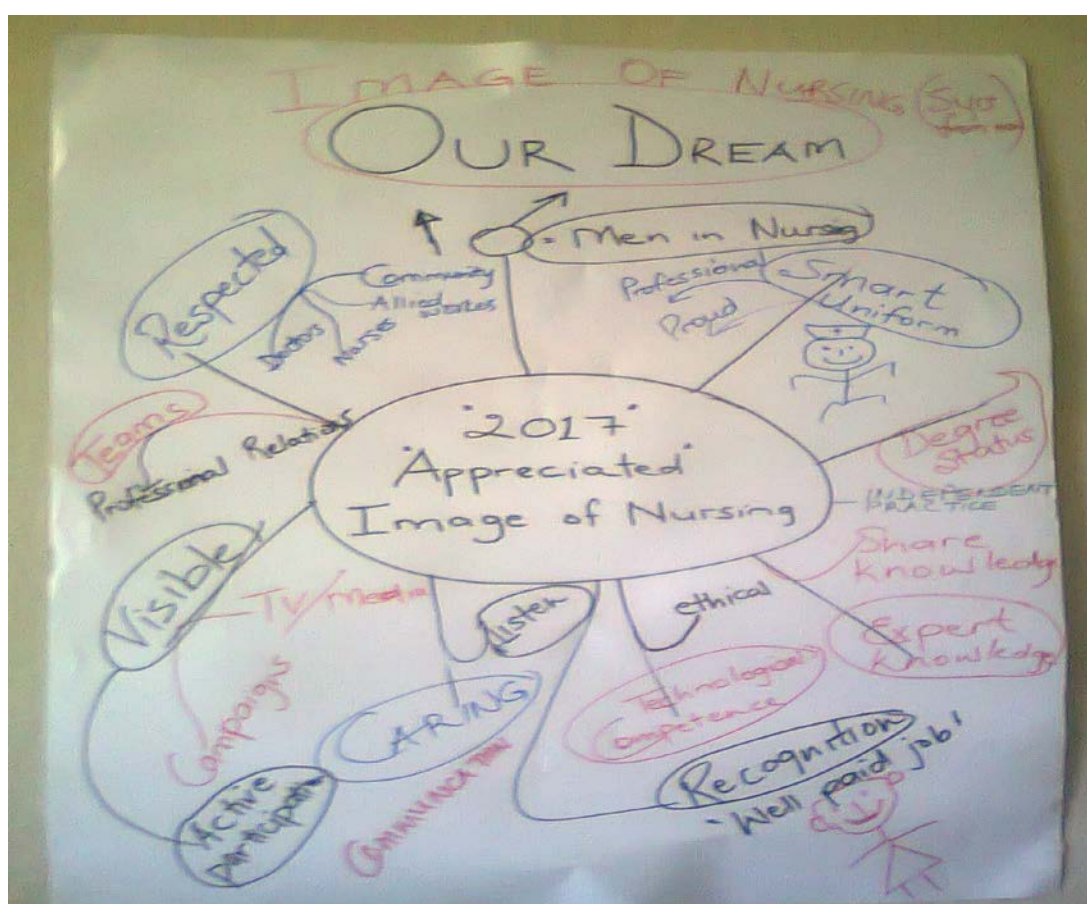 IMAGE OF NURSING (5yrs
from now)
OUR DREAM
Respected
Community
Allied
Doctors
Nurses
Men in Nursing
Professional
Proud
Smart
Uniform
Teams
Professional Relations
"2017"
"Appreciated"
Image of Nursing
Degree
Status
INDEPENDENT
PRACTICE
Share
Knowledge
Expert
Knowledge
Visible
TV/media
Campaigns
listen
ethical
CARING
Technological
Competence
Active
participation
COMMUNICATION
Recognition
"Well paid job"